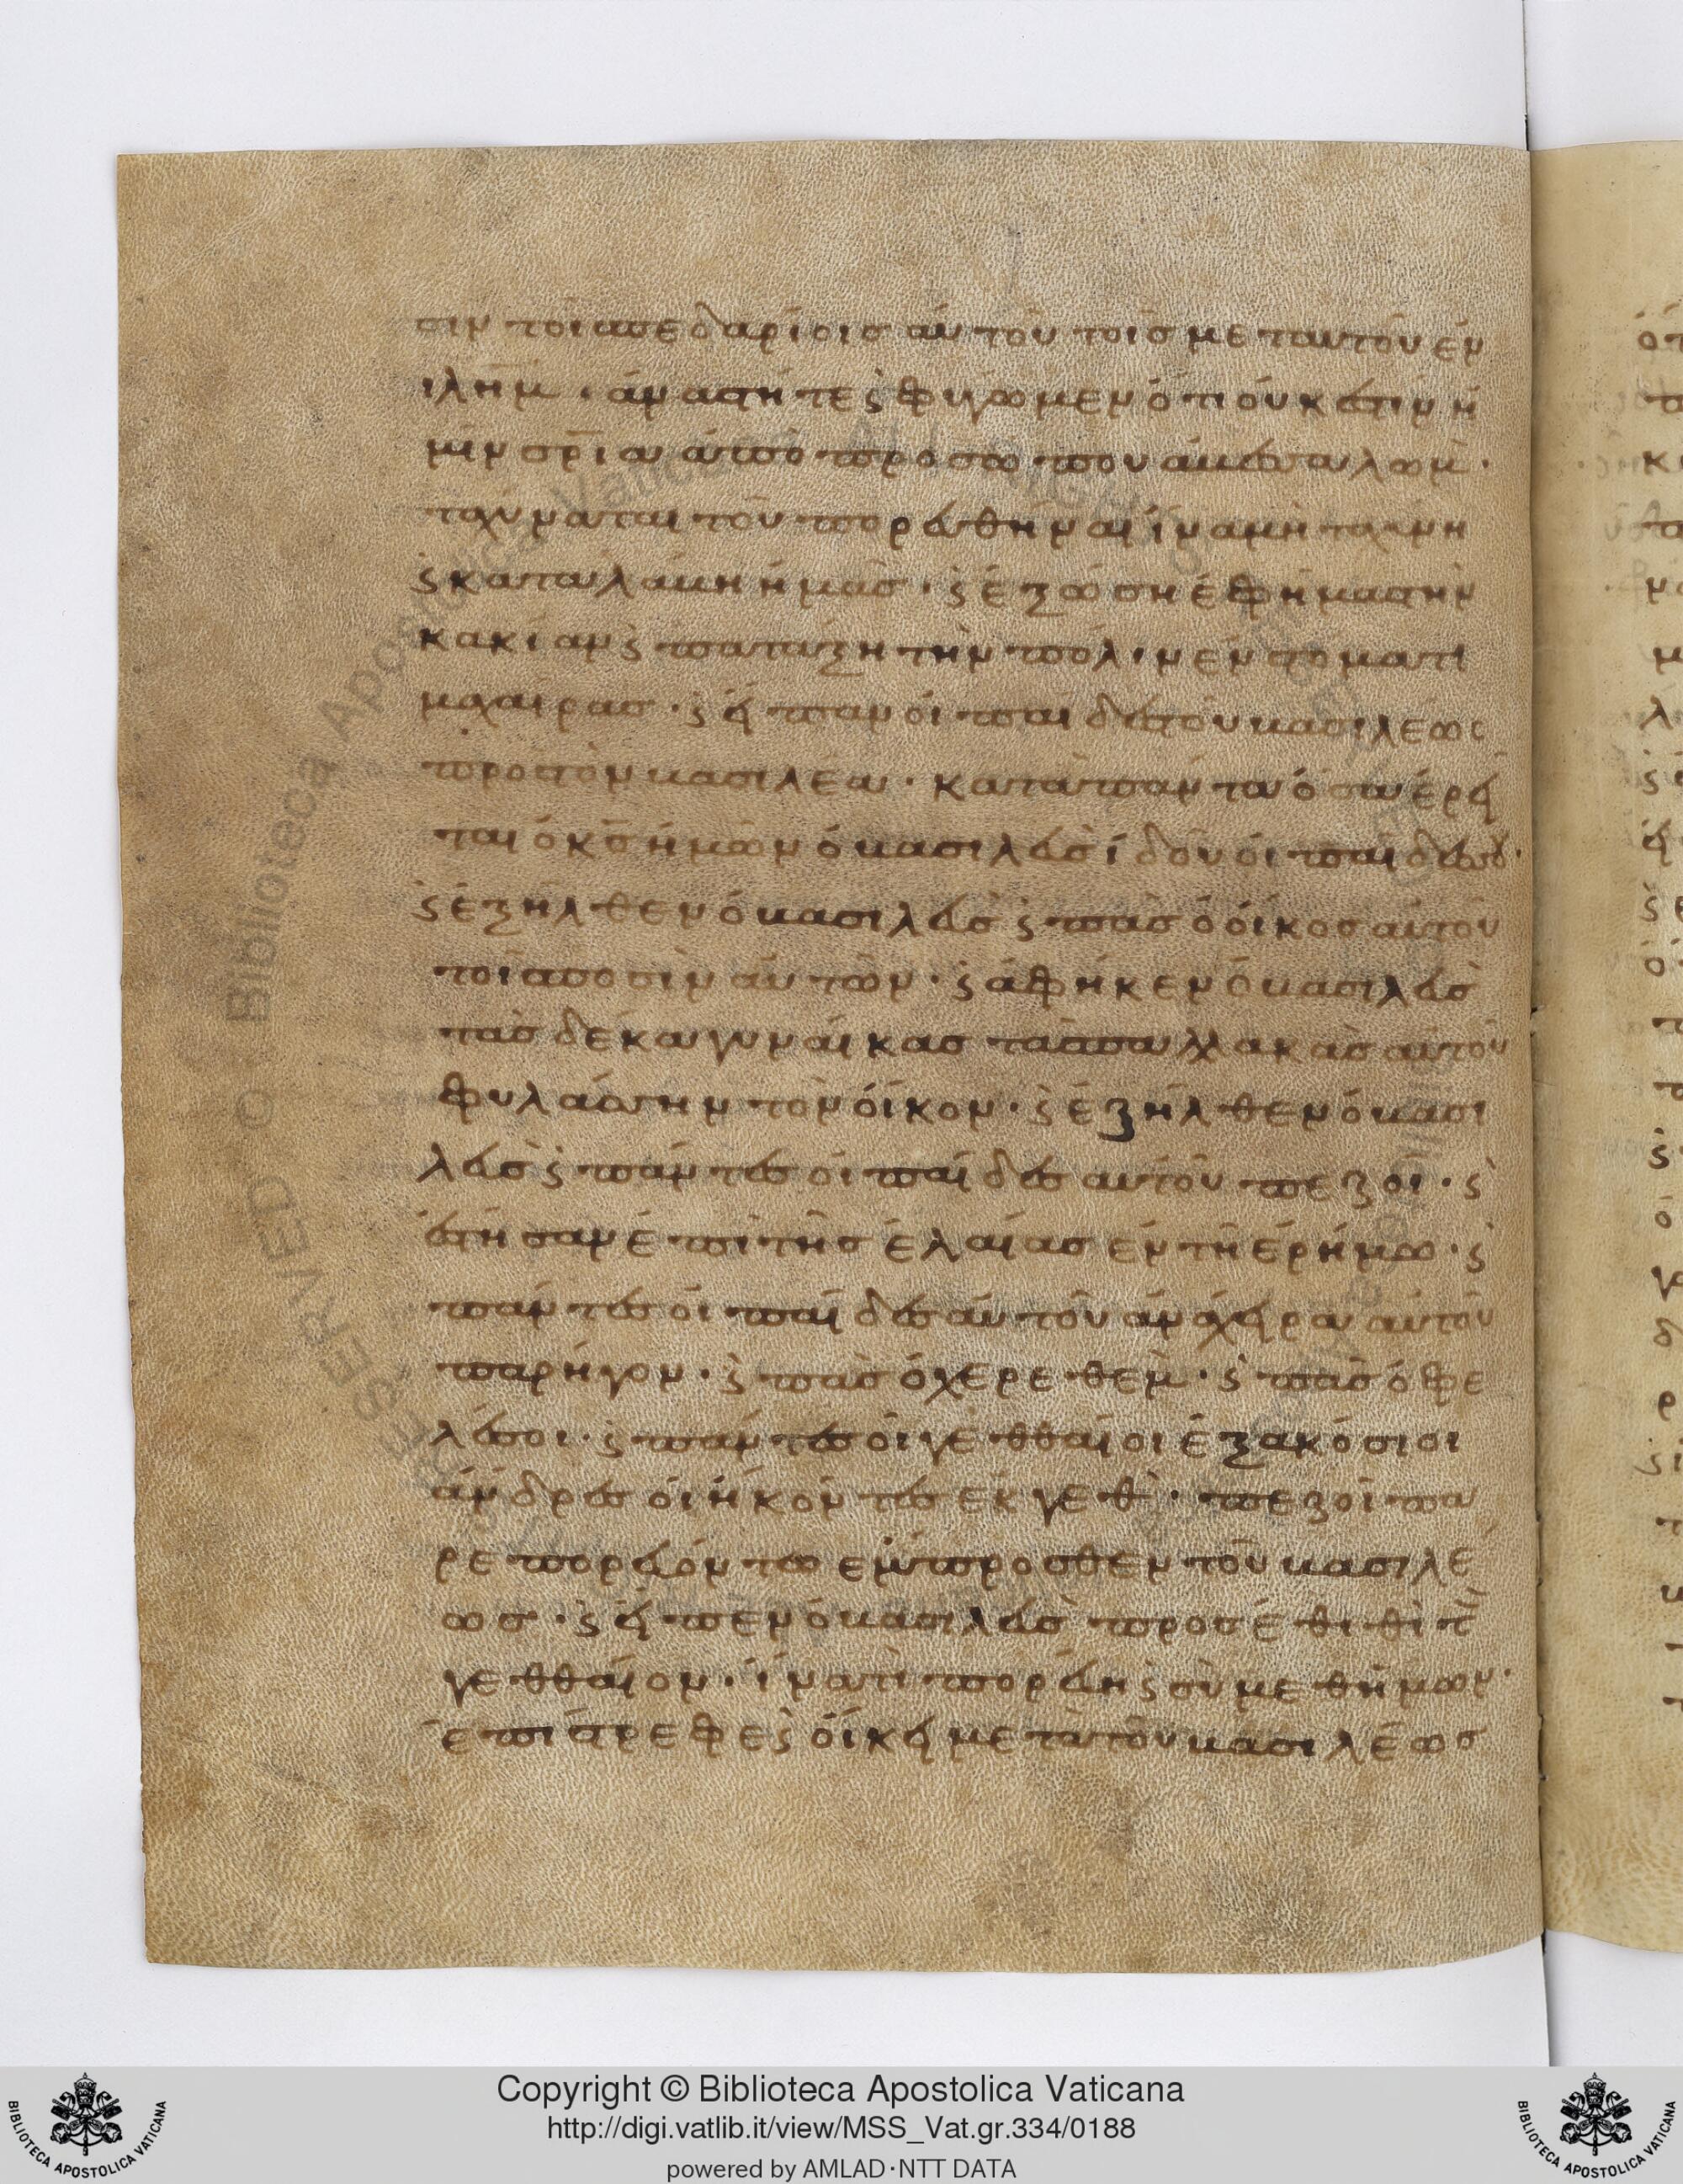 σιν τοῖς παιδαρίοις αὐτοῦ τοῖς μετ αυτοῦ ἐν
ιλῆμ · ἀναστῆτε ϛ φύγωμεν ὅτι οὐκ ἔστιν ἡ
μῖν σρία ἀπὸ προσώπου ἀβεσαλώμ ·
ταχύνατε τοῦ πορευθῆναι ἵνα μὴ ταχύνη
ϛ καταλάβη ἡμᾶς · ϛ ἐξώση ἐφ ἡμᾶς τὴν
κακίαν ϛ πατάξη τὴν πόλιν ἐν στόματι
μαχαίρας · ϛ εἶπαν οἱ παῖδες τοῦ βασιλέως
προς τὸν βασιλέα · κατὰ πάντα ὅσα ἑρεῖ
ται ὁ κς ἡμῶν ὁ βασιλεὺς ἰδοῦ οἱ παῖδές σου ·
ϛ ἐξῆλθεν ὁ βασιλεὺς ϛ πᾶς ὁ οἶκος αὐτοῦ
τοῖς ποσὶν αὐτῶν · ϛ ἀφῆκεν ὁ βασιλεὺς
τὰς δέκα γυναῖκας τὰς παλλακὰς αὐτοῦ
φυλάσσειν τὸν οἶκον · ϛ ἐξῆλθεν ὁ βασι
λεὺς ϛ πάντες οἱ παῖδες αυτοῦ πεζοί · ϛ
ἔστησαν ἐπὶ τῆς ἐλαίας ἐν τῆ ἐρήμω · ϛ
πάντες οἱ παῖδες αὐτοῦ ἀνὰ χεῖρα αὐτοῦ
παρῆγον · ϛ πᾶς ὁ χερεθεμ · ϛ πᾶς ὁ φε
λέθθι · ϛ πάντες οἱ γεθθαῖοι ἑξακόσιοι
ἄνδρες οἱ ἥκοντες ἐκ γέθ · πεζοὶ πα
ρεπορεύοντο ἔμπροσθεν τοῦ βασιλέ
ως · ϛ εἶπεν ὁ βασιλεὺς προς ἐθθὶ τὸν
γεθθαῖον · ἵνατί πορεύη ϛ σὺ μεθ ἡμῶν ·
ἐπίστρεφε ϛ οἴκει μετὰ τοῦ βασιλέως
Copyright © Biblioteca Apostolica Vaticana
http://digi.vatlib.it/view/MSS_Vat.gr.334/0188
powered by AMLAD·NTT DATA